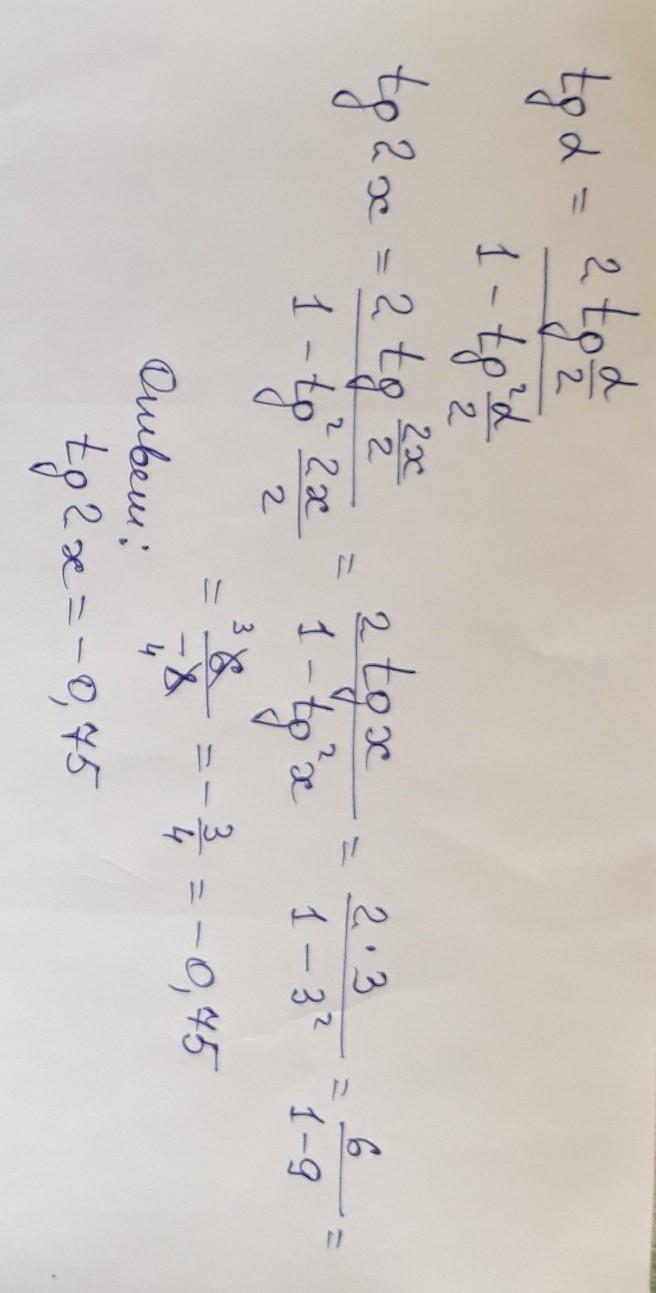 tg α = 2 tg α/2 / 1 - tg² α/2
tg 2x = 2 tg 2x/2 / 1 - tg² 2x/2 = 2 tg x / 1 - tg² x = 2 · 3 / 1 - 3² = 6 / 1 - 9 =
= 6 3 / -8 4 = - 3/4 = -0,75
Ответ:
tg 2x = -0,75